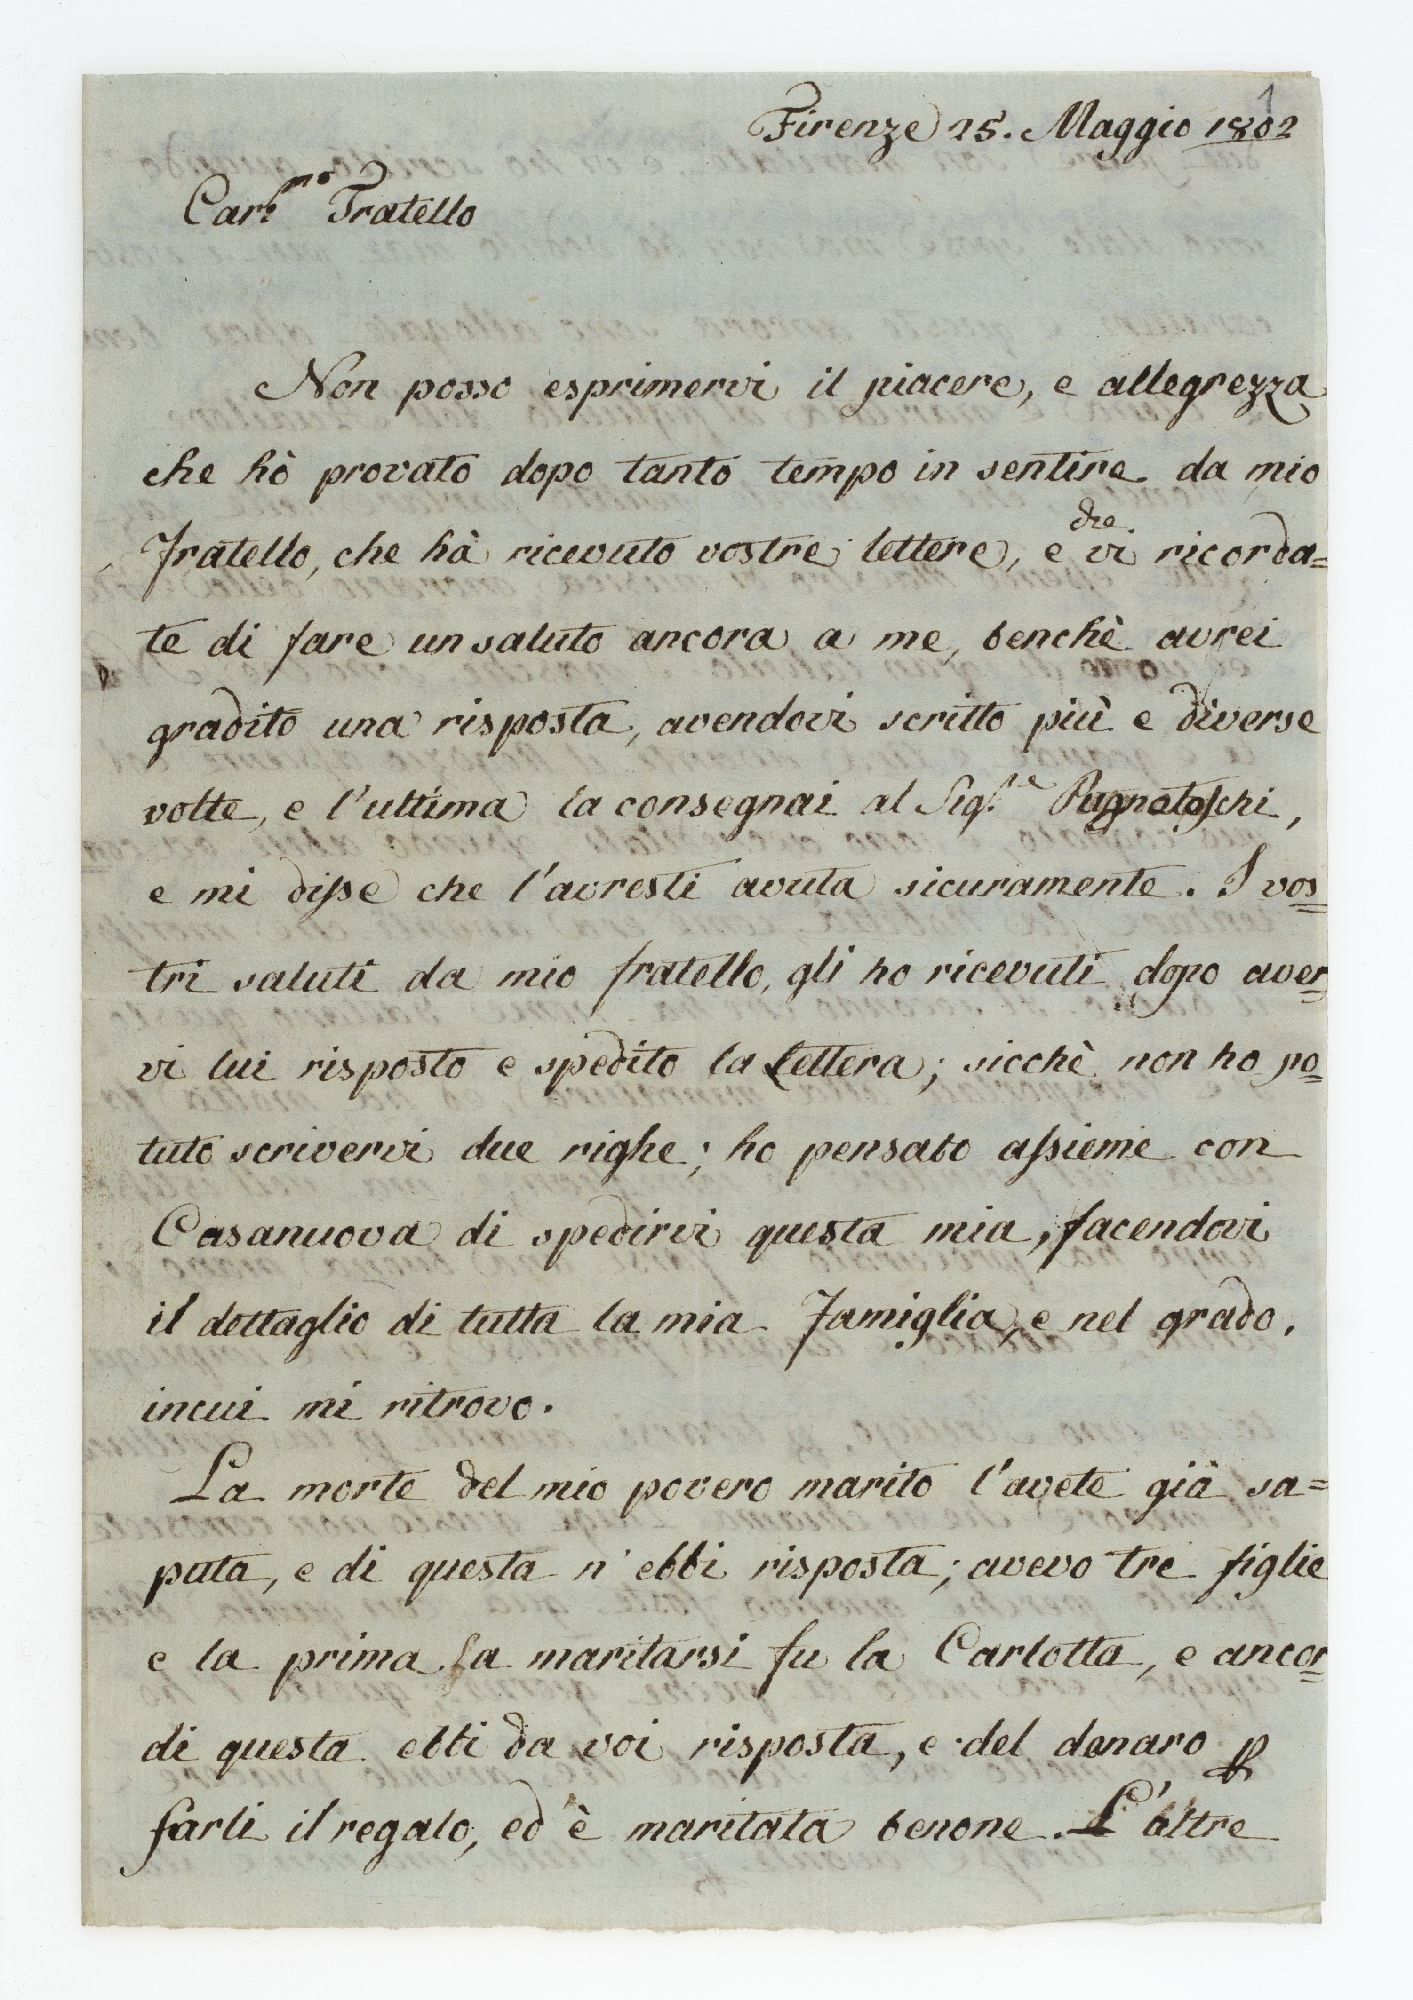 1
Firenze 25. Maggio 1802
Carmo Fratello
Non posso esprimervi il piacere, e allegrezza
che hò provato dopo tanto tempo in sentire da mio
Fratello, che hà ricevuto vostre lettere, e che vi ricorda=
te di fare un saluto ancora a me, benchè avrei
gradito una risposta, avendovi scritto più e diverse
volte, e l'ultima la consegnai al Sig.re
e mi disse che l'avresti avuta sicuramente. I vos=
tri saluti da mio fratello, gli ho ricevuti dopo aver=
vi lui risposto e spedito la lettera; sicchè non ho po=
tuto scrivervi due righe; ho pensato assieme con
Casanuova di spedirvi questa mia, facendovi
il dettaglio di tutta la mia Famiglia, e nel grado.
incui mi ritrovo.
La morte del mio povero marito l'avete già sa=
puta, e di questa n'ebbi risposta; avevo tre figlie
e la prima a maritarsi fu la Carlotta, e ancor=
di questa ebbi da voi risposta, e del denaro p
farli il regalo, ed è maritata benone. L'altre